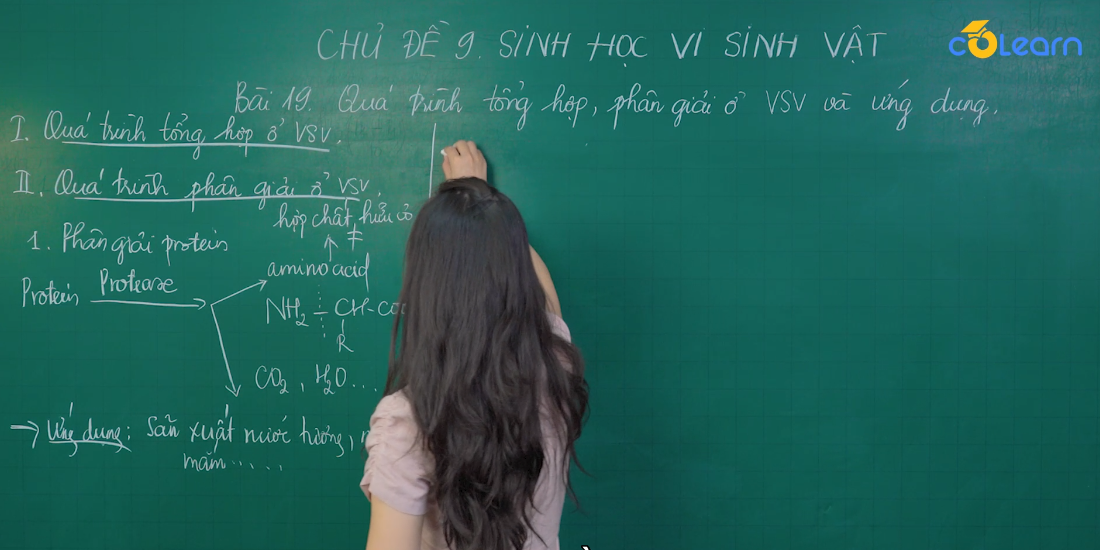 CHỦ ĐỀ 9. SINH HỌC VI SINH VẬT
COLearn
Bài 19. Quá trình tổng hợp, phân giải ở VSV và ứng dụng.
I. Quá trình tổng hợp ở VSV.
II. Quá trình phân giải ở VSV.
hợp chất hữu cơ
≠
1. Phân giải protein
amino acid
Protein Protease
NH2 - CH-CO
R
CO2, H2O...
→ Ứng dụng: Sản xuất nước tương,
mắm.....